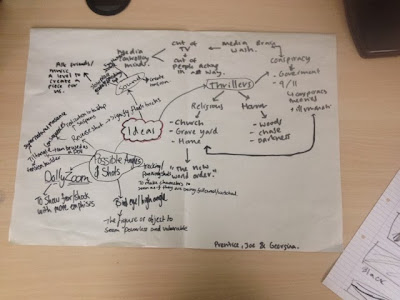 media
controlling
minds.
cut of
TV
+
cut of
people acting
in odd way.
media brain
wash.
conspiracy
Government
9/11
conspiracy
theories
illuminati
Thrillers
Religious
Church
Grave yard
Home
Horror
woods
chase
darkness
"The new
world order"
Ask friends/
music
a level to
create a
piece for
us.
Sound
create
tension
Ideas
Possible Angles
& Shots
Reverse shot
Dolly Zoom
To Show fear/shock
with more emphasis
tracking/
To make characters
seem as if they are being followed/watched
Bird eye/high angle
The figure or object to
seem powerless and vulnerable
Prentice, Joe & Georgina.